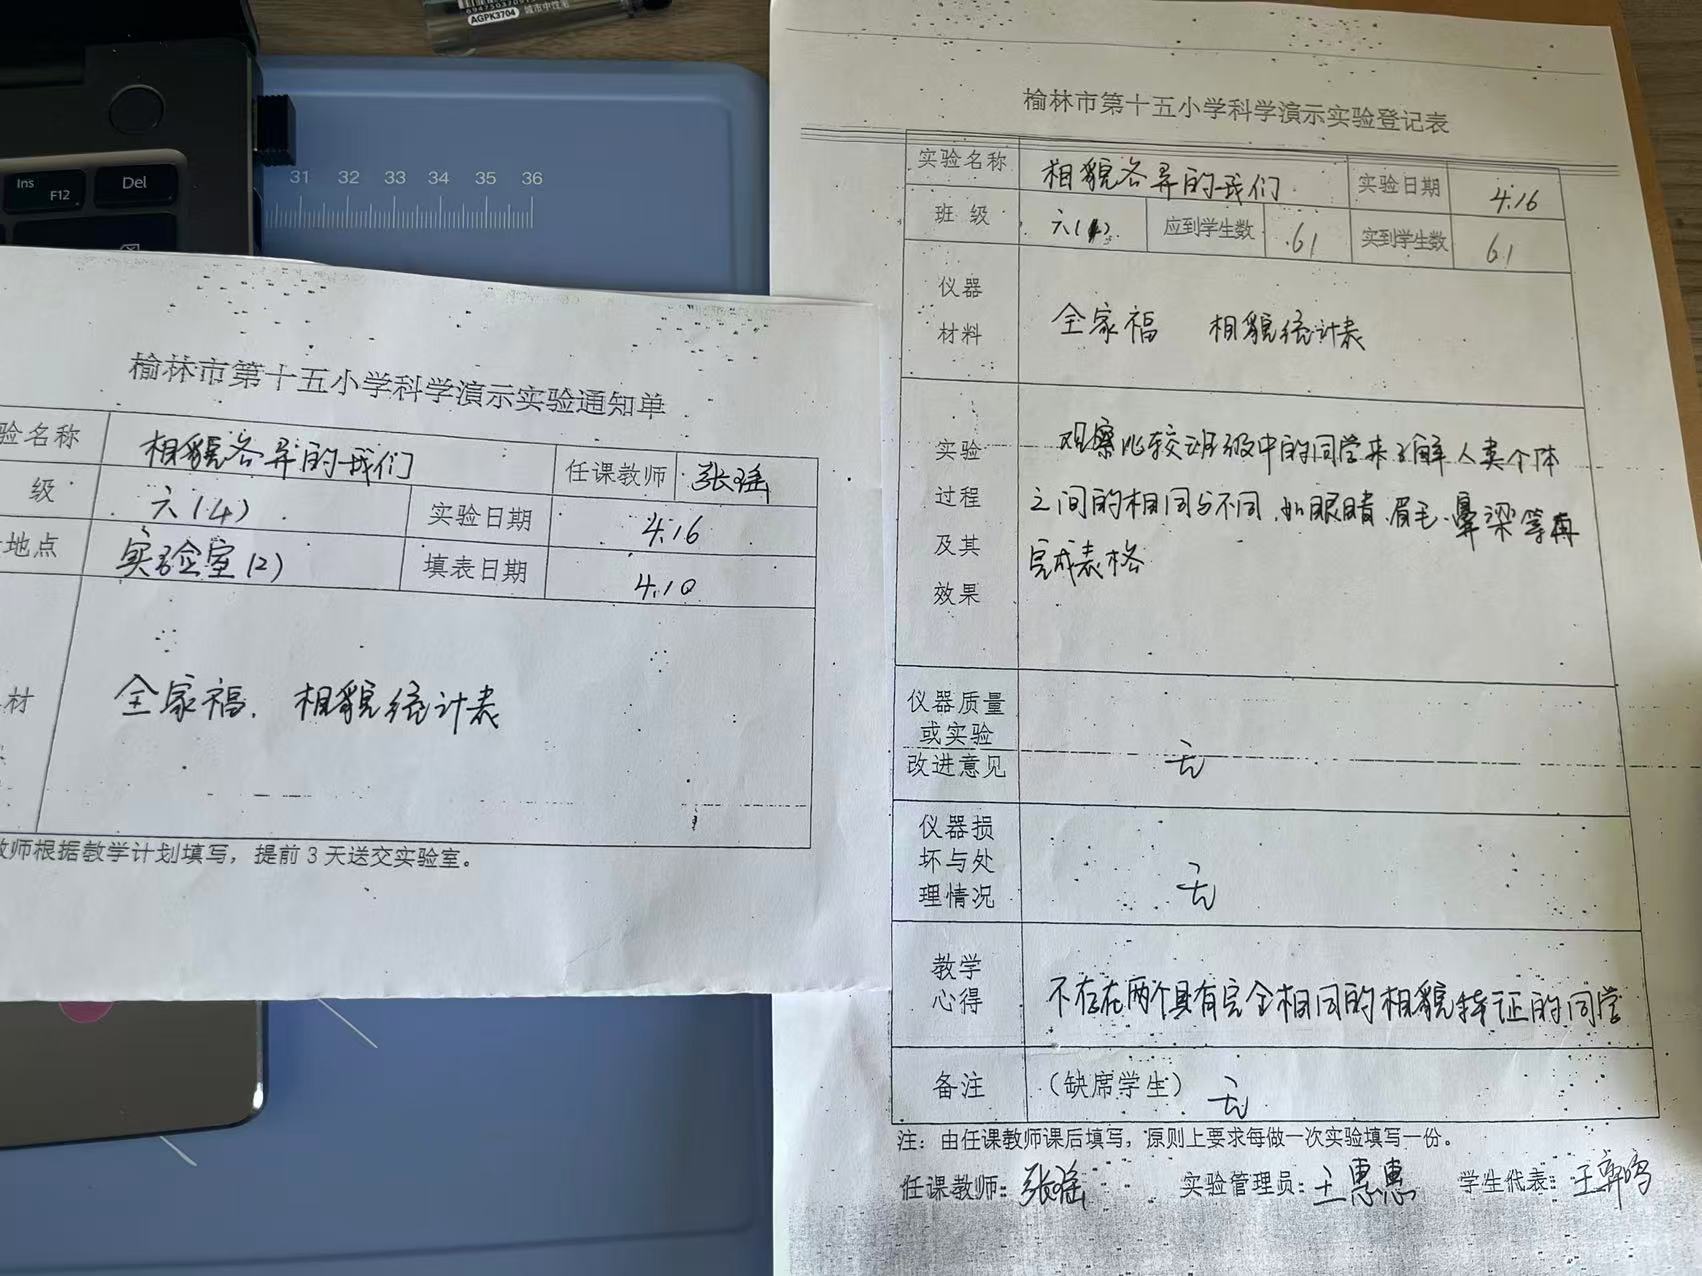 AGPK3704 城市中性笔
Ins
F12
Del
31 32 33 34 35 36
榆林市第十五小学科学演示实验通知单
验名称 相貌各异的我们 任课教师 张瑶
级 六(4) 实验日期 4.16
地点 实验室(2) 填表日期 4.10
材 全家福. 相貌统计表
教师根据教学计划填写，提前3天送交实验室。
榆林市第十五小学科学演示实验登记表
实验名称 相貌各异的我们 实验日期 4.16
班 级 六( ) 应到学生数 61 实到学生数 61
仪器
材料
全家福 相貌统计表
实验
过程
及其
效果
观察比较班级中的同学来了解人类个体
之间的相同与不同.如眼睛.眉毛.鼻梁等再
完成表格
仪器质量
或实验
改进意见
无
仪器损
坏与处
理情况
无
教学
心得
不存在两个具有完全相同的相貌特证的同学
备注 （缺席学生） 无
注：由任课教师课后填写，原则上要求每做一次实验填写一份。
任课教师：张瑶 实验管理员：王惠惠 学生代表：王